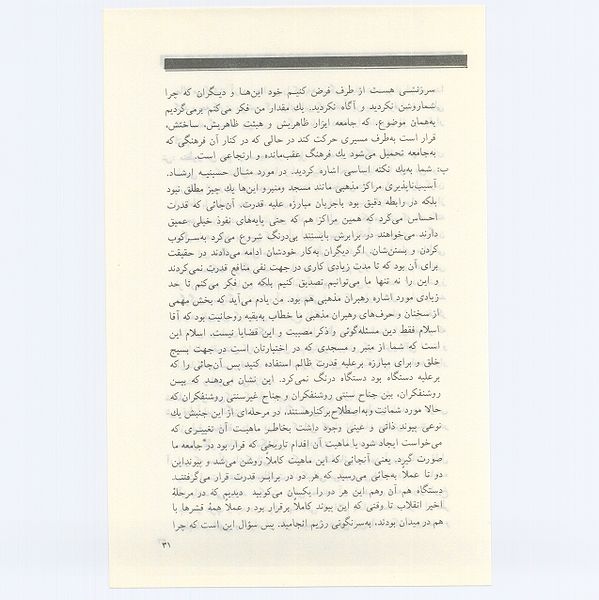 سرزنشی هست از طرف فرض کنیم خود این‌ها و دیگران که چرا
شماروشن نکردید و آگاه نکردید. یك مقدار من فکر می‌کنم برمی‌گردیم
به‌همان موضوع، که جامعه ابزار ظاهریش و هیئت ظاهریش، ساختش،
قرار است به‌طرف مسیری حرکت کند در حالی که در کنار آن فرهنگی که
به‌جامعه تحمیل می‌شود یك فرهنگ عقب‌مانده و ارتجاعی است.
ب: شما به‌یك نکته اساسی اشاره کردید. در مورد مثال حسینیه ارشاد.
آسیب‌ناپذیری مراکز مذهبی مانند مسجد ومنبر و این‌ها یك چیز مطلق نبود
بلکه در رابطه دقیق بود باجریان مبارزه علیه قدرت. آن‌جائی که قدرت
احساس می‌کرد که همین مراکز هم که حتی پایه‌های نفوذ خیلی عمیق
دارند می‌خواهند در برابرش بایستند بی‌درنگ شروع می‌کرد به‌سرکوب
کردن و بستن‌شان. اگر دیگران به‌کار خودشان ادامه می‌دادند در حقیقت
برای آن بود که تا مدت زیادی کاری در جهت نفی منافع قدرت نمی‌کردند
و این را نه تنها ما می‌توانیم تصدیق کنیم بلکه من فکر می‌کنم تا حد
زیادی مورد اشاره رهبران مذهبی هم بود. من یادم می‌آید که بخش مهمی
از سخنان و حرف‌های رهبران مذهبی ما خطاب به‌بقیه روحانیت بود که آقا
اسلام فقط دین مسئله‌گوئی و ذکر مصیبت و این قضایا نیست. اسلام این
است که شما از منبر و مسجدی که در اختیارتان است در جهت بسیج
خلق و برای مبارزه برعلیه قدرت ظالم استفاده کنید پس آن‌جائی را که
برعلیه دستگاه بود دستگاه درنگ نمی‌کرد. این نشان می‌دهد که بین
روشنفکران، بین جناح سنتی روشنفکران و جناح غیرسنتی روشنفکران که
حالا مورد شماتت و به‌اصطلاح برکنارهستند، در مرحله‌ای از این جنبش یك
نوعی پیوند ذاتی و عینی وجود داشت بخاطر ماهیت آن تغییری که
می‌خواست ایجاد شود یا ماهیت آن اقدام تاریخی که قرار بود در جامعه ما
صورت گیرد. یعنی آنجائی که این ماهیت کاملاً روشن می‌شد و پیونداین
دو تا عملاً به‌جائی می‌رسید که هر دو در برابر قدرت قرار می‌گرفتند
دستگاه هم آن وهم این هر دو را یکسان می‌کوبید دیدیم که در مرحلهٔ
اخیر انقلاب تا وقتی که این پیوند کاملاً برقرار بود و عملاً همهٔ قشرها با
هم در میدان بودند، به‌سرنگونی رژیم انجامید. پس سؤال این است که چرا
۳۱